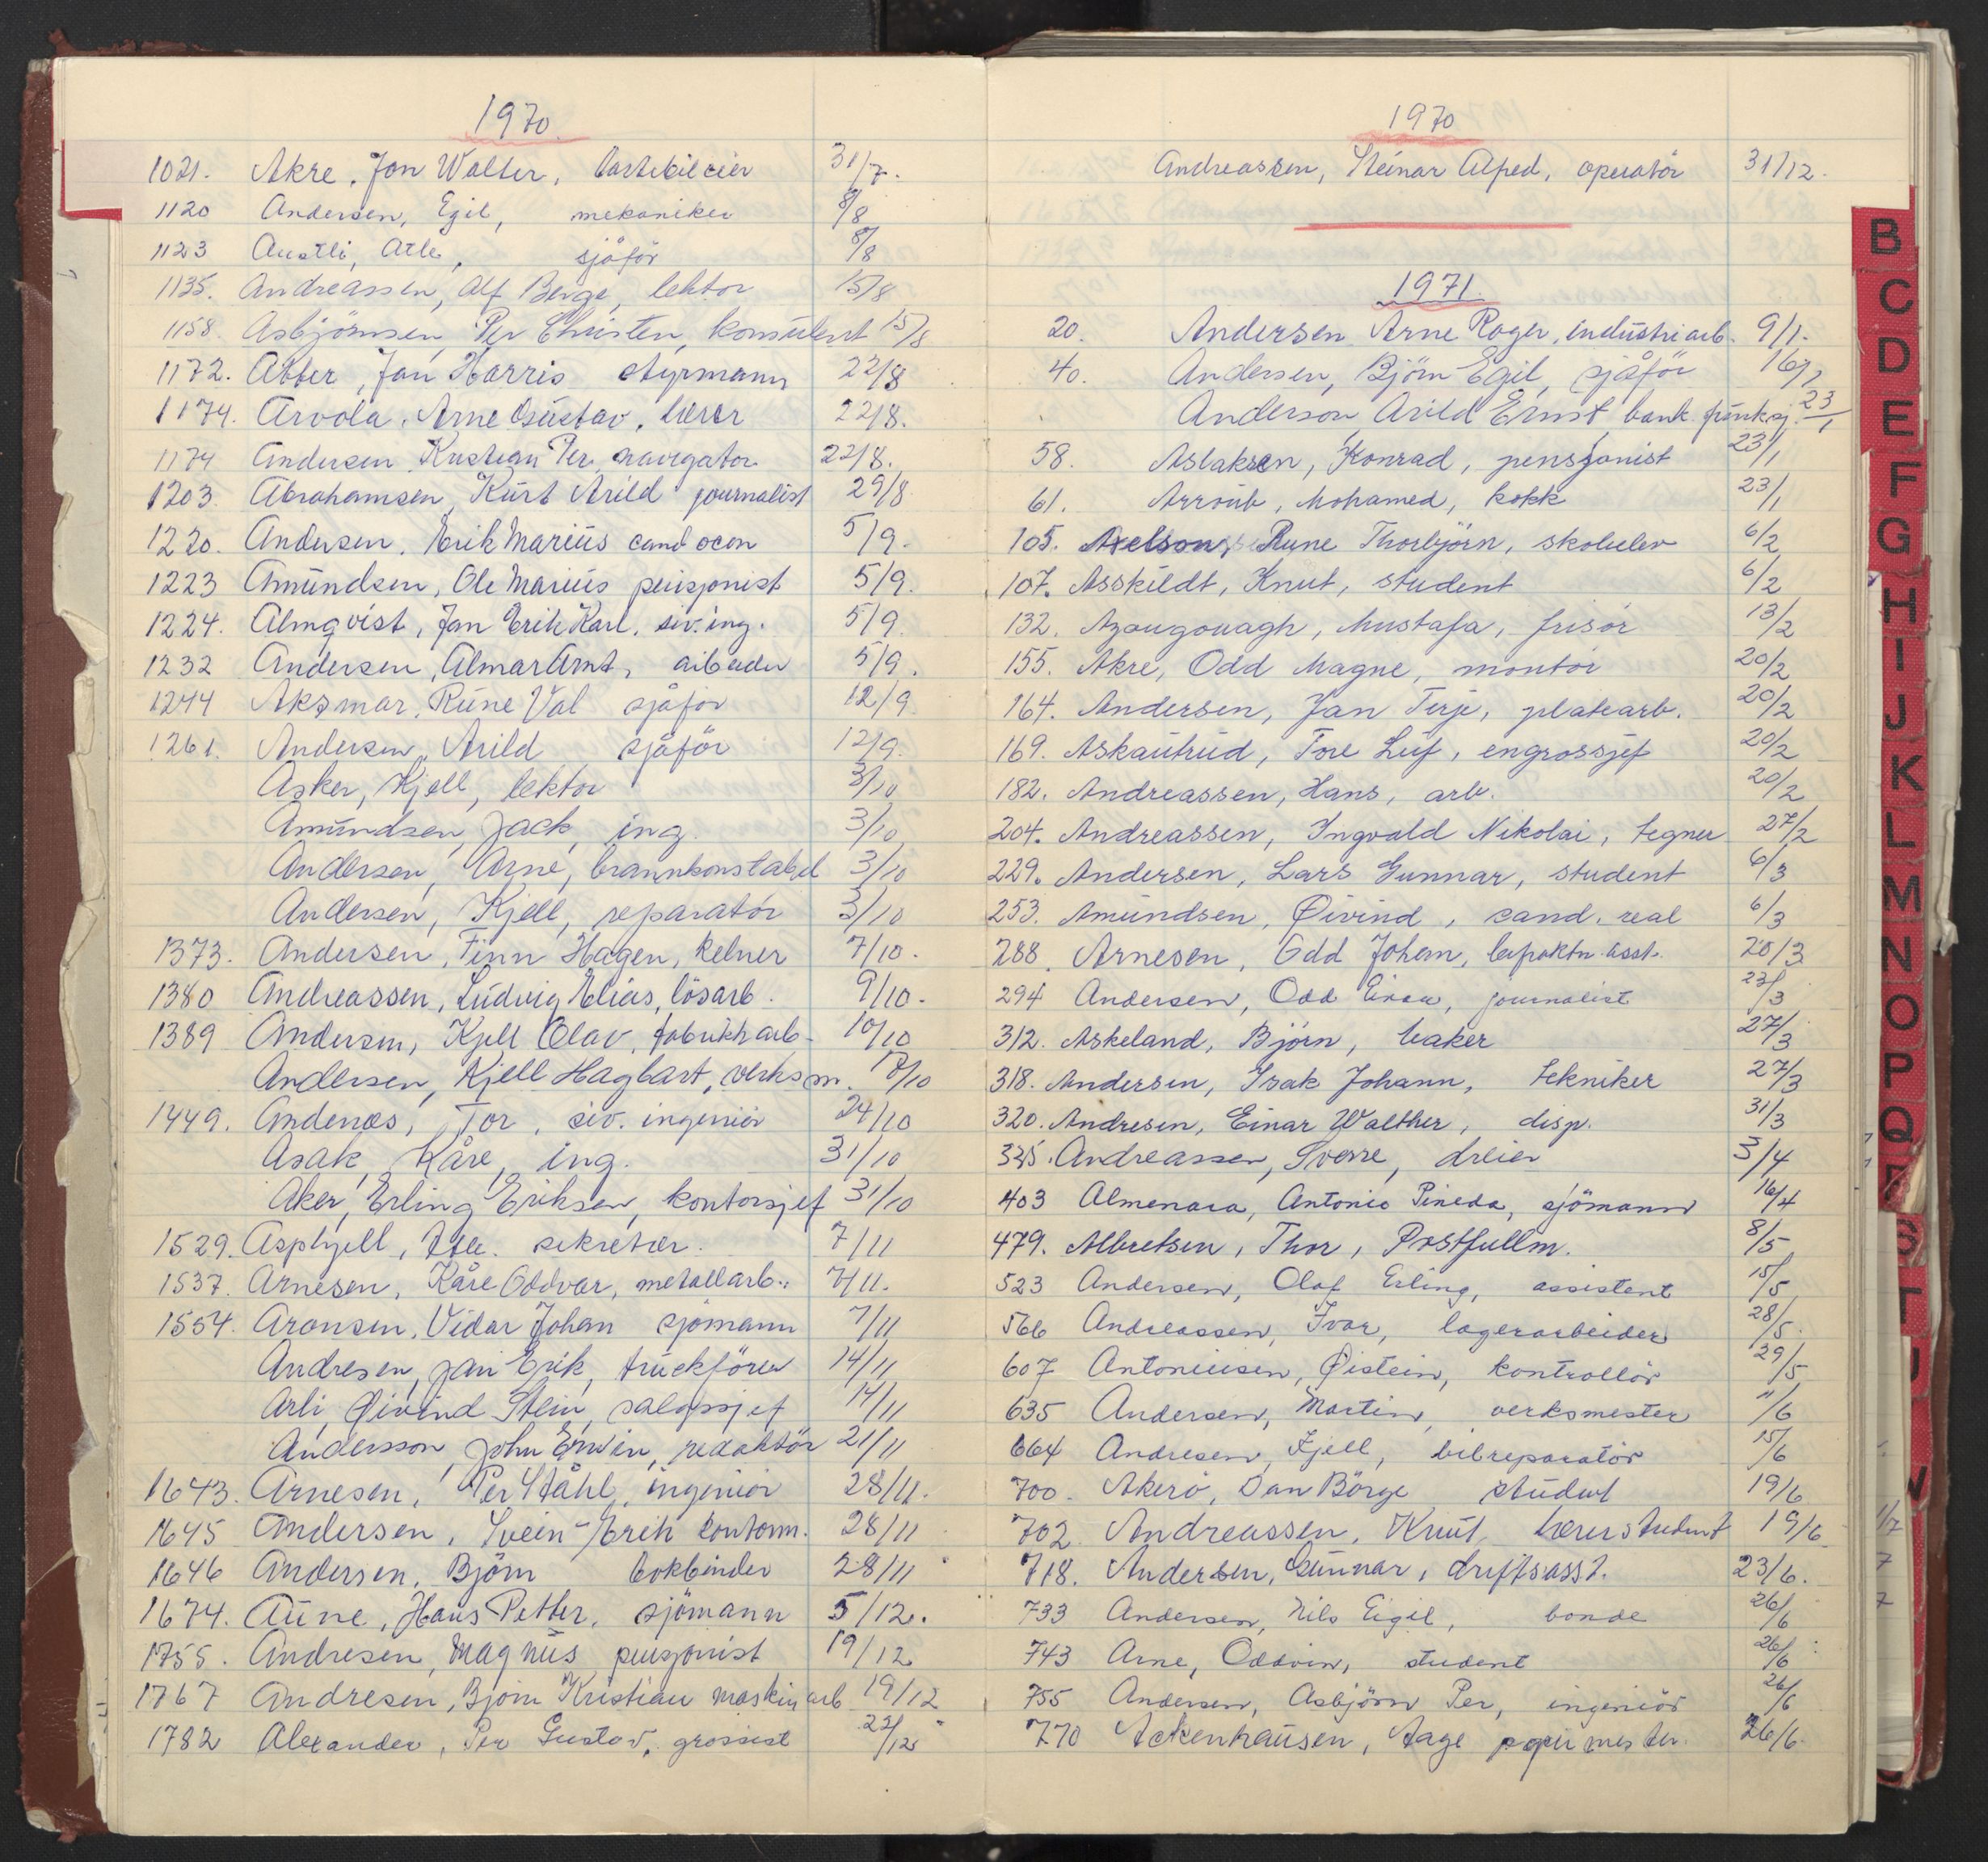 1970
1021. Akre, Jon Walter, lastebileier 31/7.
1120 Andersen, Egil, mekaniker 8/8
1123 Austli, Atle, sjåför 8/8
1135. Andreassen, Alf Berge, lektor 15/8
1158. Asbjörnsen, Per Christen, konsulent 15/8
1172. Atter, Jan Harris styrmann 22/8
1174. Arvola, Arne Gustav, lærer 22/8.
1174 Andersen Kristian Per navigatør 22/8.
1203 Abrahamsen, Kurt Arild journalist 29/8
1220. Andersen, Erik Marius cand oecon 5/9.
1223 Amundsen, Ole Marius pensjonist 5/9.
1224. Almqvist, Jan Erik Karl, siv.ing. 5/9
1232 Andersen, Almar Arnt, arbeider 5/9.
1244 Aksmar, Rune Val sjåför 12/9
1261. Andersen, Arild sjåför 12/9.
Asker, Kjell, lektor 3/10
Amundsen, Jack, ing. 3/10
Andersen, Arne, brannkonstabel 3/10
Andersen, Kjell, reparatör 3/10
1373. Andersen, Finn Hagen, kelner 7/10.
1380 Andreassen, Ludvig Elias, lösarb. 9/10.
1389 Andersen, Kjell Olav, fabrikkarb. 10/10
Andersen, Kjell Hagbart, verksm. /10
1449. Andenæs, Tor, siv. ingeniör 24/10
Asak, Kåre, ing. 31/10
Aker, Erling Eriksen, kontorsjef 31/10
1529. Asphjell, Atle. sekretær. 7/11
1537. Arnesen, Kåre Oddvar, metallarb. 7/11.
1554. Aronsen, Vidar Johan sjömann 7/11
Andresen, Jan Erik, truckförer 14/11
Arli, Øivind Stein, salgssjef 14/11
Andersson, John Erwin, redaktör 21/11
1643. Arnesen, Per Ståhl, ingeniör 28/11.
1645 Andersen, Svein-Erik kontorm. 28/11
1646 Andersen, Björn bokbinder 28/11
1674. Aune, Hans Petter, sjömann 5/12.
1755. Andresen, Magnus pensjonist 19/12
1767 Andresen, Björn Kristian maskinarb 19/12
1782 Alexander, Per Gustav, grossist 22/12
1970
Andreassen, Steinar Alfred, operatör 31/12.
1971.
20. Andersen Arne Roger, industriarb. 9/1.
40. Andersen, Björn Egil, sjåför 16/1
Anderson, Arild Ernst, bank funksj. 23/1
58. Aslaksen, Konrad, pensjonist 23/1
61. Arroub, Mohamed, kokk 23/1
105. Axelson, Rune Thorbjörn, skoleelev 6/2
107. Asskildt, Knut, student 6/2
132. Azougouagh, Mustafa, frisör 13/2
155. Akre, Odd Magne, montör 20/2
164. Andersen, Jan Terje, platearb. 20/2
169. Askautrud, Tore Leif, engrossjef 20/2
182. Andreassen, Hans, arb. 20/2
204. Andreassen, Ingvald Nikolai, tegner 27/2
229. Andersen, Lars Gunnar, student 6/3
253. Amundsen, Øivind, cand. real 6/3
288. Arnesen, Odd Johan, asst. 20/3
294 Andersen, Odd Einar, journalist 23/3
312. Askeland, Björn, baker 27/3
318. Andersen, Isak Johann, tekniker 27/3
320. Andresen, Einar Walther, disp. 31/3
335. Andreassen, Sverre, dreier 3/4
403 Almenara, Antonio Pineda, sjömann 16/4
479. Albretsen, Thor, Postfullm. 8/5
523 Andersen, Olaf Erling, assistent 15/5
566 Andreassen, Ivar, lagerarbeider 28/5.
607 Antoniussen, Øistein, kontrollör 29/5
635 Andersen, Martin, verksmester 11/6
664 Andresen, Kjell, bilreparatör 15/6
700. Akerö, Dan Börge student 19/6
702 Andreassen, Knut, lærerstudent 19/6
718. Andersen, Gunnar, driftsasst. 23/6.
733 Andersen, Nils Eigil, bonde 26/6
743 Arne, Oddvin, student 26/6
755 Andersen, Asbjörn Per, ingeniör 26/6
770 Ackenhausen, Aage papirmester. 26/6.
B
C
D
E
F
G
H
I
J
K
L
M
N
O
P
Q
S
T